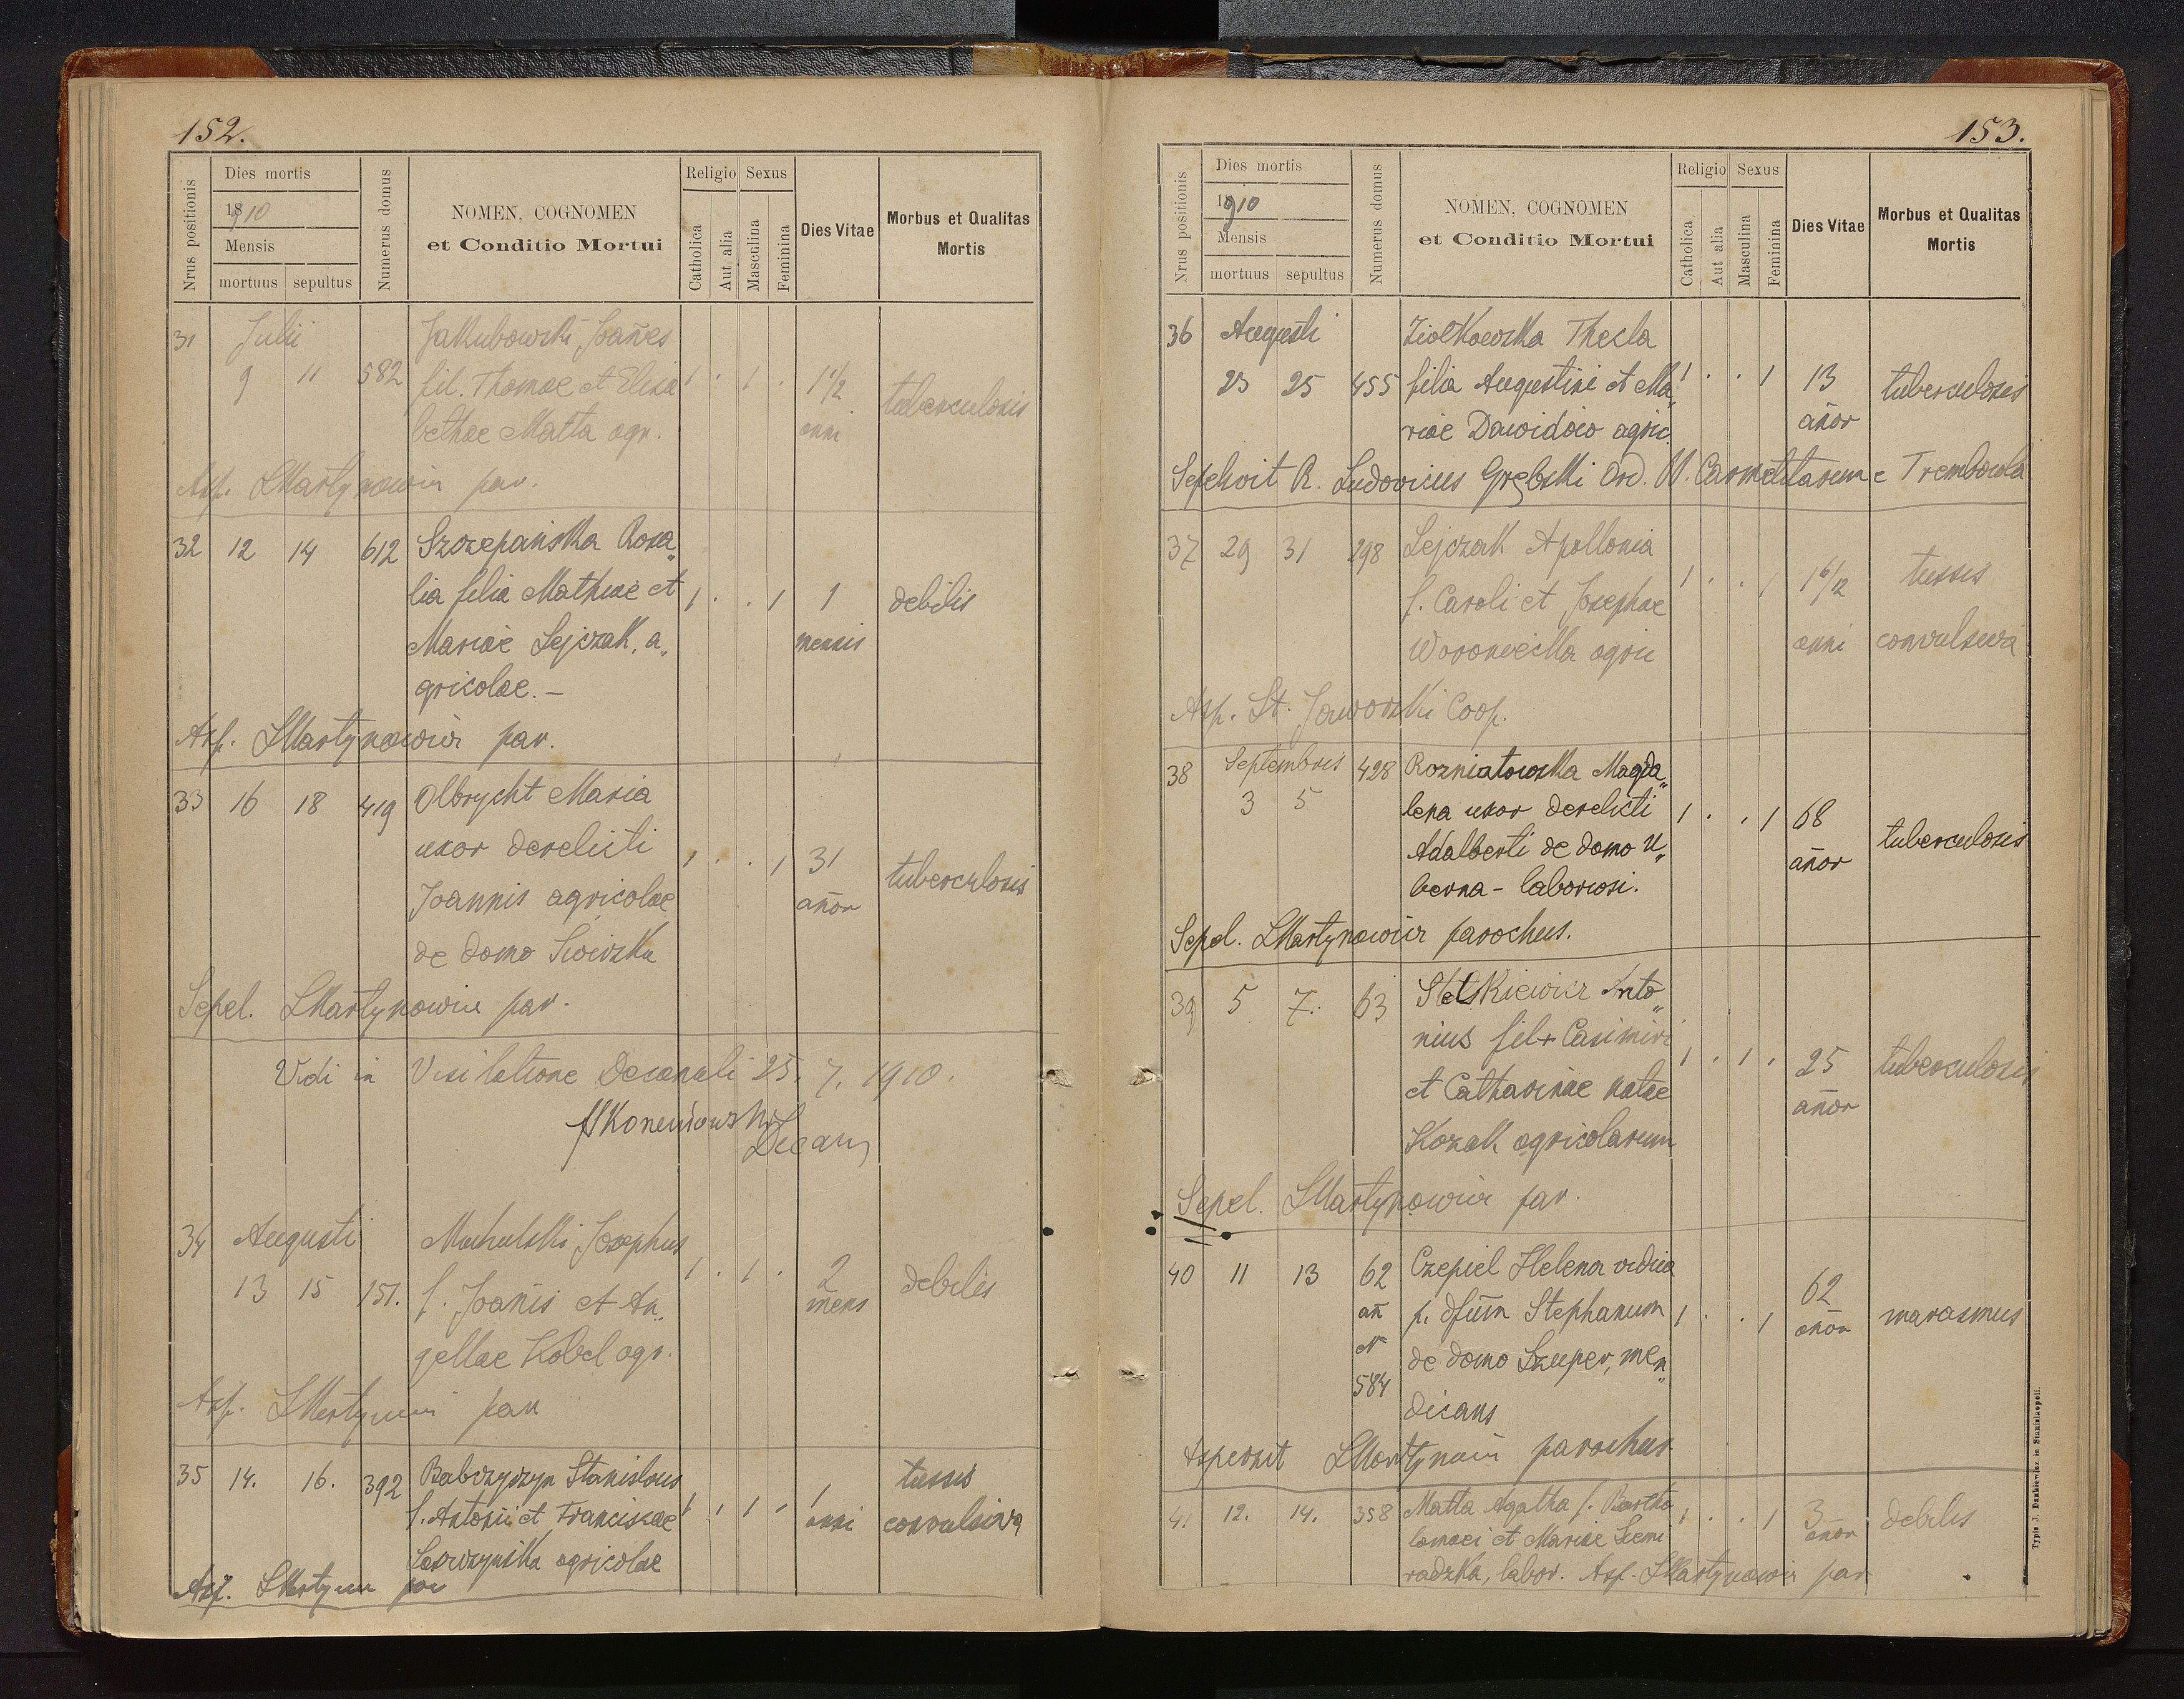 152.
Nrus positionis
Dies mortis
1910
Mensis
mortuus sepultus
Numerus domus
NOMEN, COGNOMEN
et Conditio Mortui
Religio Sexus
Catholica
Aut alia
Masculina
Feminina
Dies Vitae
Morbus et Qualitas
Mortis
31 Julii Jakubowski Joañes
9 11 582 fil. Thomae et Elisa
1 . 1 . 1 1/2 tuberculosis
bethae Matta agr. anni
Asp. LMartynowicz par.
32 12 14 612 Szczepańska Rosa„
lia filia Mathiae et 1 . . 1 1 debilis
Mariae Lejczak, a„ mensis
gricolae. —
Asp. LMartynowicz par.
33 16 18 419 Olbrycht Maria
uxor derelicti 1 . . 1 31 tuberculosis
Joannis agricolae añor
de domo
Sepel. LMartynowicz par.
Vidi in Visitatione Decanali 25. 7. 1910.
Decan
34 Augusti Machulski Josephus
13 15 151. f. Joañis et An„ 1 . 1 . 2 debilis
gellae Kobel agr. mens
Asp. LMartynowicz par
35 14. 16. 392 Babczyszyn Stanislaus tussis
f. Antonii et Franciscae 1 . 1 . 1 anni convulsiva
agricolae
Asp. LMartynow par
153.
Nrus positionis
Dies mortis
1910
Mensis
mortuus sepultus
Numerus domus
NOMEN, COGNOMEN
et Conditio Mortui
Religio Sexus
Catholica
Aut alia
Masculina
Feminina
Dies Vitae
Morbus et Qualitas
Mortis
36 Augusti Ziołkowska Thecla
23 25 455 filia Augustini et Ma„ 1 . . 1 13 tuberculosis
riae Dawidów agric. añor
Sepelivit R. Ludovicus Grębski Ord. Carmelitarum e Trembowla
37 29 31 298 Lejczak Apollonia
f. Caroli et Josephae 1 . . 1 1 6/12 tussis
Woroniecka agric anni convulsiva
Asp. St. Jaworski Coop.
38 Septembris 428 Rozniatowska Magda„
3 5 lena uxor derelicti 1 . . 1 68 tuberculosis
Adalberti de domo U„ añor
berna - laboriosi.
Sepel. LMartynowicz parochus.
39 5 7. 63 Statkiewicz Anto„
nius fil + Casimiri 1 . 1 . 25 tuberculosis
et Catharinae natae añor
Kozak agricolarum
Sepel. LMartynowicz par.
40 11 13 62 Czepiel Helena vidua
añ p. dfūm Stephanum 1 . . 1 62 marasmus
et de domo Szuper, men„ añor
584 dicans
Aspersit LMartynowicz parochus
41. 12. 14. 358 Matta Agatha f. Bartho 1 . . 1 3 debilis
lomaei et Mariae Siemi añor
radzka, labor. Asp. LMartynowicz par
Typis J. Dankiewicz in Stanislaopoli.